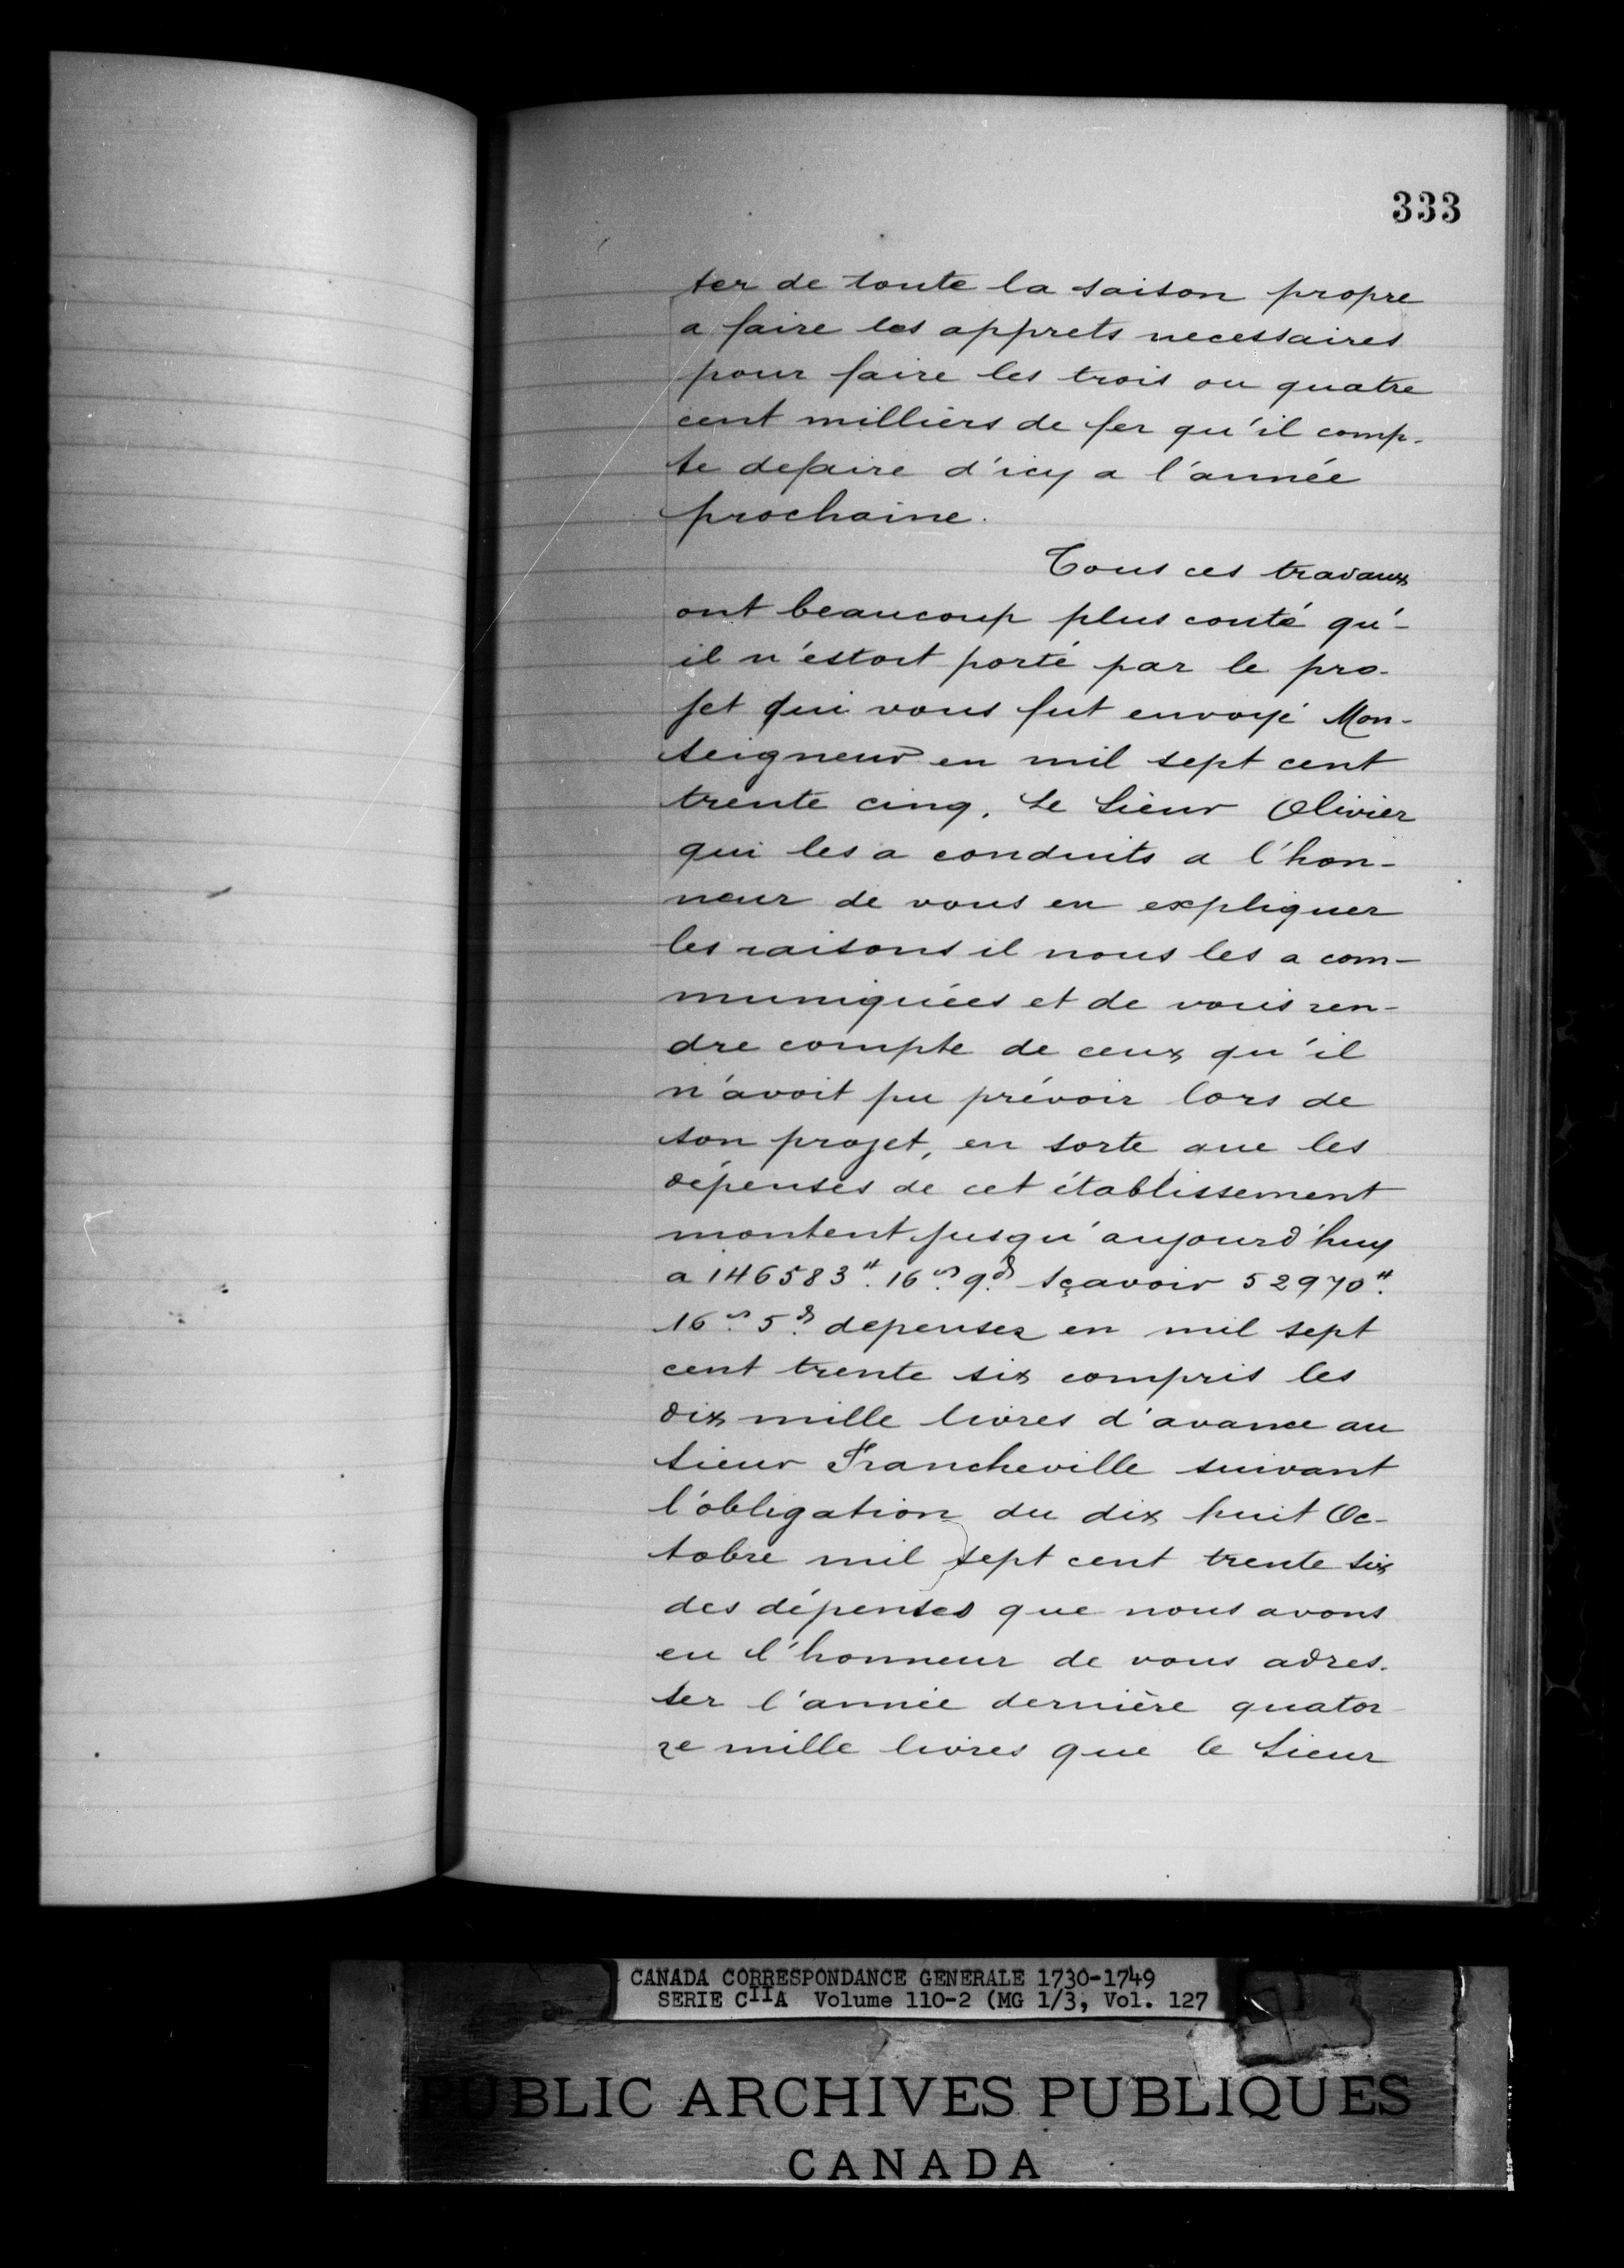 333
ter de toute la saison propre
a faire les apprets necessaires
pour faire les trois ou quatre
cent milliers de fer qu'il comp-
te defaire d'icy a l'année
prochaine.
Tous ces travaux
ont beaucoup plus couté qu'-
il n'estoit porté par le pro-
jet qui vous fut envoyé Mon-
seigneur en mil sept cent
trente cinq. Le Sieur Olivier
qui les a conduits a l'hon-
neur de vous en expliquer
les raisons il nous les a com-
muniquées et de vous ren-
dre compte de ceux qu'il
n'avoit pu prévoir lors de
son projet, en sorte que les
dépenses de cet établissement
montent jusqu'aujourd'huy
a 146583#. 16s. 9d. sçavoir 52970#.
16s. 5d. depensez en mil sept
cent trente six compris les
dix mille livres d'avance au
Sieur Francheville suivant
l'obligation du dix huit Oc-
tobre mil sept cent trente six
des dépenses que nous avons
eu l'honneur de vous adres-
ser l'année dernière quator-
ze mille livres que le Sieur
CANADA CORRESPONDANCE GENERALE 1730-1749
SERIE CIIA Volume 110-2 (MG 1/3, Vol. 127
PUBLIC ARCHIVES PUBLIQUES
CANADA